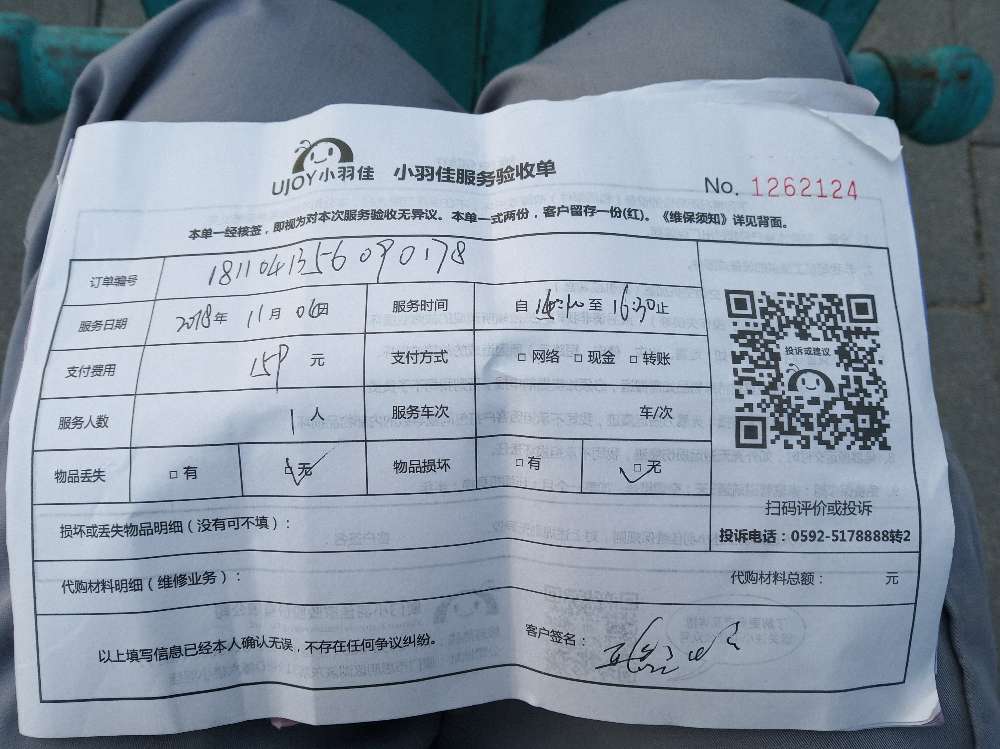 UJOY小羽佳 小羽佳服务验收单
No. 1262124
本单一经核签，即视为对本次服务验收无异议。本单一式两份，客户留存一份(红)。《维保须知》详见背面。
订单编号 1811041356090178
服务日期 2018年 11月 06日 服务时间 自 14:40 至 16:30止
支付费用 159 元 支付方式 □ 网络 □ 现金 □ 转账
服务人数 1 人 服务车次 车/次
物品丢失 □ 有 □ 无 物品损坏 □ 有 □ 无
投诉或建议
扫码评价或投诉
投诉电话：0592-5178888转2
损坏或丢失物品明细（没有可不填）：
代购材料明细（维修业务）： 代购材料总额： 元
以上填写信息已经本人确认无误，不存在任何争议纠纷。 客户签名：